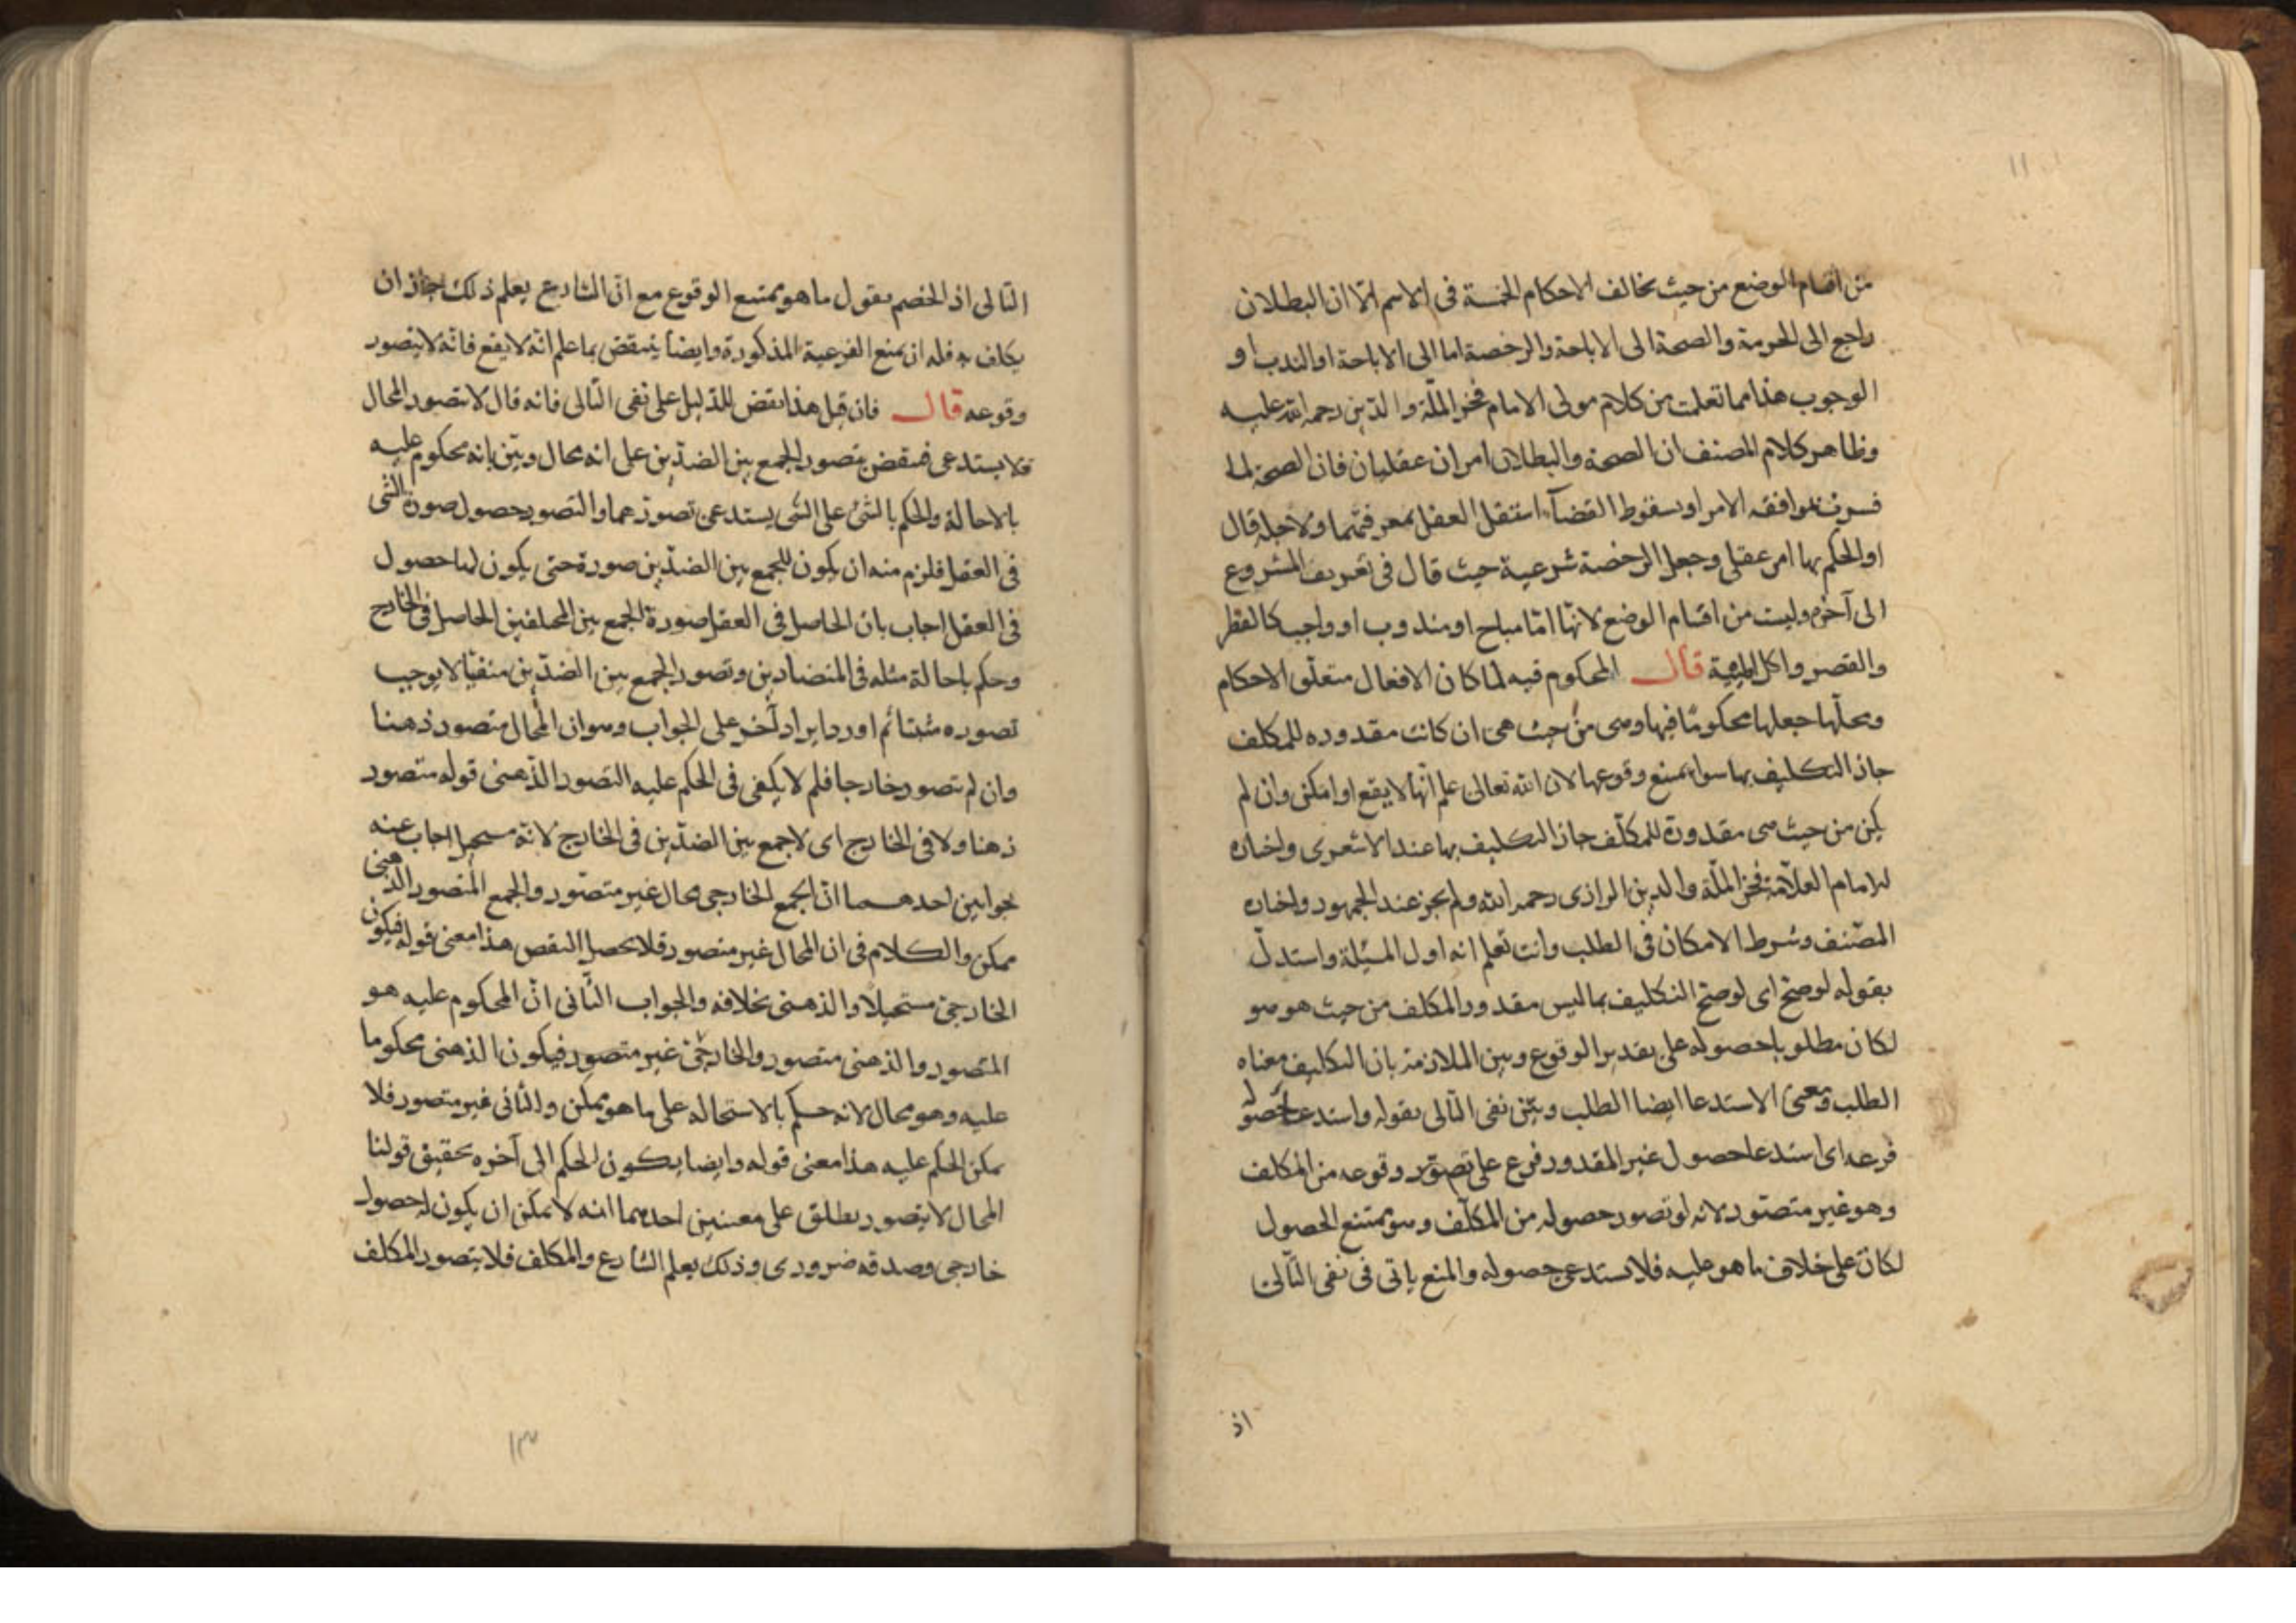 ١١
من اقسام الوضع من حيث يخالف الاحكام الخمسة فى الاسم الا ان البطلان
راجع الى الحرمة والصحة الى الاباحة والرخصة اما الى الاباحة او الندب او
الوجوب هذا مما تعلمت من كلام مولى الامام فخر الملّة والدّين رحمه الله عليه
وظاهر كلام المصنف ان الصحة والبطلان امران عقليان فان الصحة لما
فسرت بموافقه الامر او بسقوط القضآء استقل العقل بمعرفتهما ولاجله قال
او الحكم بها امر عقلى وجعل الرخصة شرعية حيث قال فى تعريف المشروع
الى آخره وليست من اقسام الوضع لانّها امّا مباح او مندوب او واجب كالفطر
والقصر واكل الميتة قال المحكوم فيه لما كان الافعال متعلّق الاحكام
ومحلّها جعلها محكومًا فيها وهى من حيث هى ان كانت مقدوره للمكلف
جاز التكليف بها سواء يمتنع وقوعها لان الله تعالى علم انّها لا يقع او امكن وان لم
يكن من حيث هى مقدورة للمكلّف جاز التكليف بها عند الاشعرى واختاره
الامام العلّامة فخر الملّة والدين الرازى رحمه الله ولم يجز عند الجمهور واختاره
المصّنف وشرط الامكان فى الطلب وانت تعلم انه اول المسئلة واستدل
بقوله لو صحّ اى لو صحّ التكليف بما ليس مقدور المكلف من حيث هو هو
لكان مطلوبا حصوله على تقدير الوقوع وبين الملازمة بان التكليف معناه
الطلب ومعنى الاستدعا ايضا الطلب وبيّن نفى التّالى بقوله واستدعا حصوله
فرعه اى استدعا حصول غير المقدور فرع على تصوّر وقوعه من المكلف
وهو غير متصّور لانه لو تصور حصوله من المكلّف وهو يمتنع الحصول
لكان على خلاف ما هو عليه فلا يستدعى حصوله والمنع ياتى فى نفى التّالى
اذ
التّالى اذ الخصم يقول ما هو يمتنع الوقوع مع انّ الشارع يعلم ذلك جاز ان
يكلف به فله ان يمنع الفرعية المذكورة وايضا ينتقض بما علم انّه لا يقع فانّه لا يتصور
وقوعه قال فان قيل هذا نقض للدّليل على نفى التّالى فانه قال لا يتصور المحال
فلا يستدعى فينقض بتصور الجمع بين الضدّين على انه محال وبيّن بانه محكوم عليه
بالاحالة والحكم بالشئ على الشى يستدعى تصورهما والتصور حصول صورة الشى
فى العقل فلزم منه ان يكون للجمع بين الضدّين صورة حتى يكون لها حصول
فى العقل اجاب بان الحاصل فى العقل صورة الجمع بين المختلفين الحاصل فى الخارج
وحكم باحالة مثله فى المتضادين وتصور الجمع بين الضدّين منفيّا لا يوجب
تصوره مثبتا ثم اورد ايراد آخر على الجواب وهو ان المحال متصور ذهنا
وان لم يتصور خارجا فلم لا يكفى فى الحكم عليه التصور الذّهنى قوله متصور
ذهنا ولا فى الخارج اى لا جمع بين الضدّين فى الخارج لانّه مستحيل اجاب عنه
جوابين احدهما انّ الجمع الخارجى محال غير متصّور والجمع المتصور الذهنى
ممكن والكلام فى ان المحال غير متصور فلا يحصل النقص هذا معنى قوله فيكون
الخارجى مستحيلا والذهنى بخلافه والجواب الثّانى انّ المحكوم عليه هو
المتصور والذهنى متصور والخارجى غير متصور فيكون الذهنى محكوما
عليه وهو محال لانه حكم بالاستحاله على ما هو ممكن والثانى غير متصور فلا
يمكن الحكم عليه هذا معنى قوله وايضا يكون الحكم الى آخره تحقيق قولنا
المحال لا يتصور يطلق على معنيين احدهما انه لا يمكن ان يكون له حصول
خارجى وصدقه ضرورى وذلك يعلم الشارع والمكلف فلا يتصور المكلف
١٣